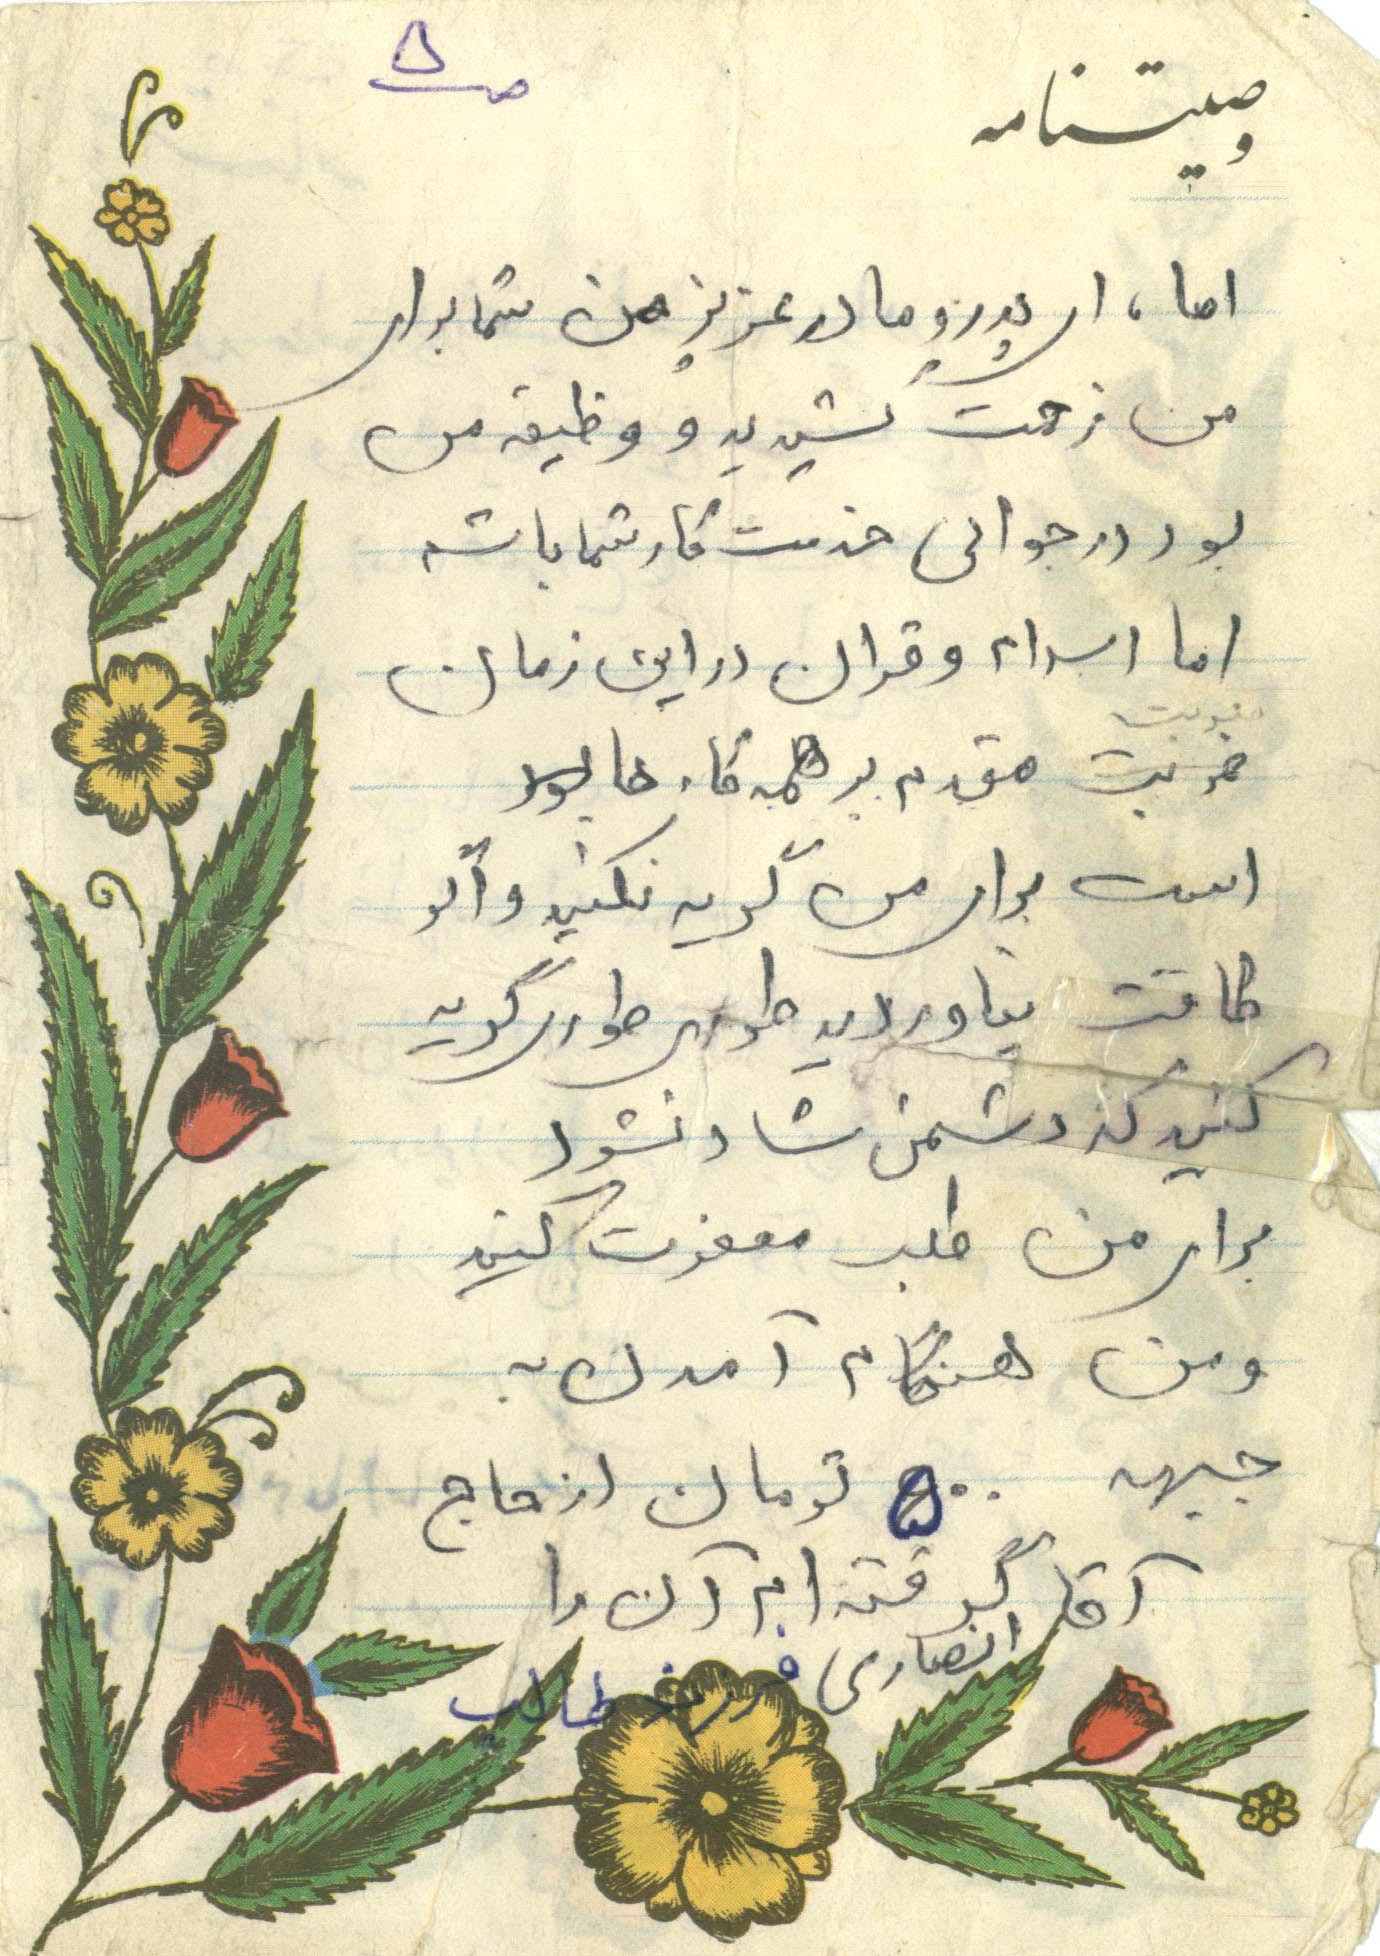 ص ۵
وصیتنامه
اما، ای پدر و مادر عزیز من شما برای
من زحمت کشیدید و وظیفه من
بود در جوانی خدمت کار شما باشم
اما اسلام و قران در این زمان
غربت مقدم بر همه کار ها بود
است برای من گریه نکنید و اگر
طاقت نیاوردید طوری طوری گریه
کنید که دشمن شاد نشود
برای من طلب مغفرت کنید
و من هنگام آمدن به
جبهه ۵۰۰ تومان از حاج
آقا گرفته ام آن را
انصاری فرزند طالب